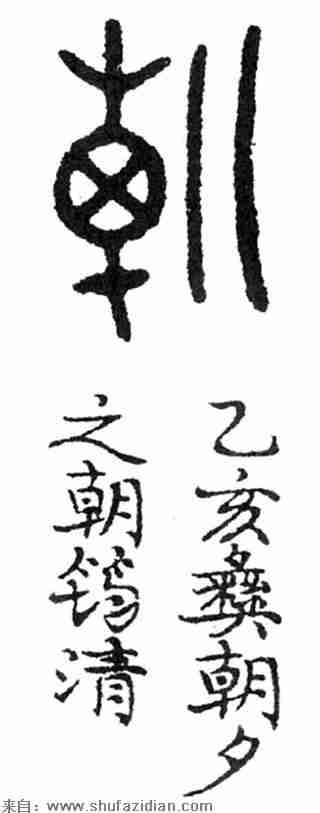 朝
乙亥彝朝夕
之朝筠清
来自：www.shufazidian.com